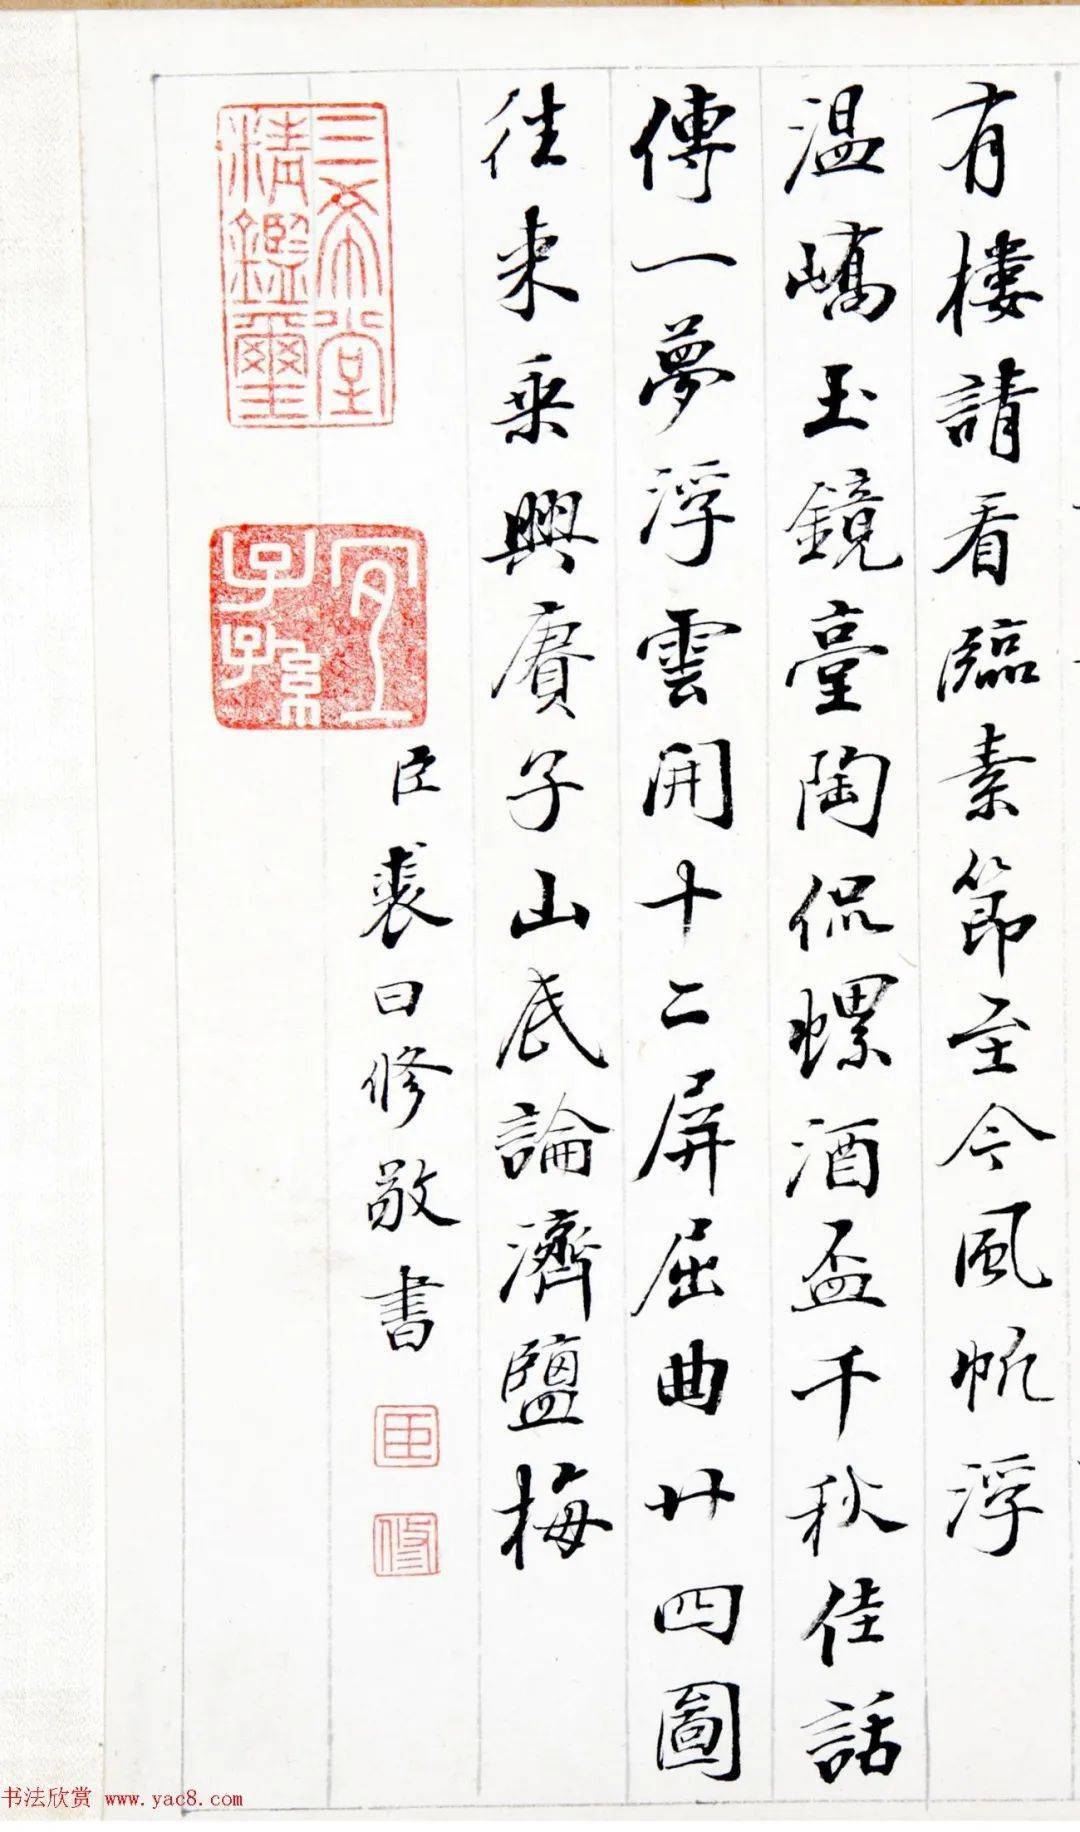 有樓請看臨素節至今風帆浮
溫嶠玉鏡臺陶侃螺酒盃千秋佳話
傳一夢浮雲開十二屏屈曲廿四圖
往來乘興賡子山底論濟鹽梅
臣裘曰修敬書
臣
修
三希堂
精鑑璽
宜
子孫
书法欣赏 www.yac8.com